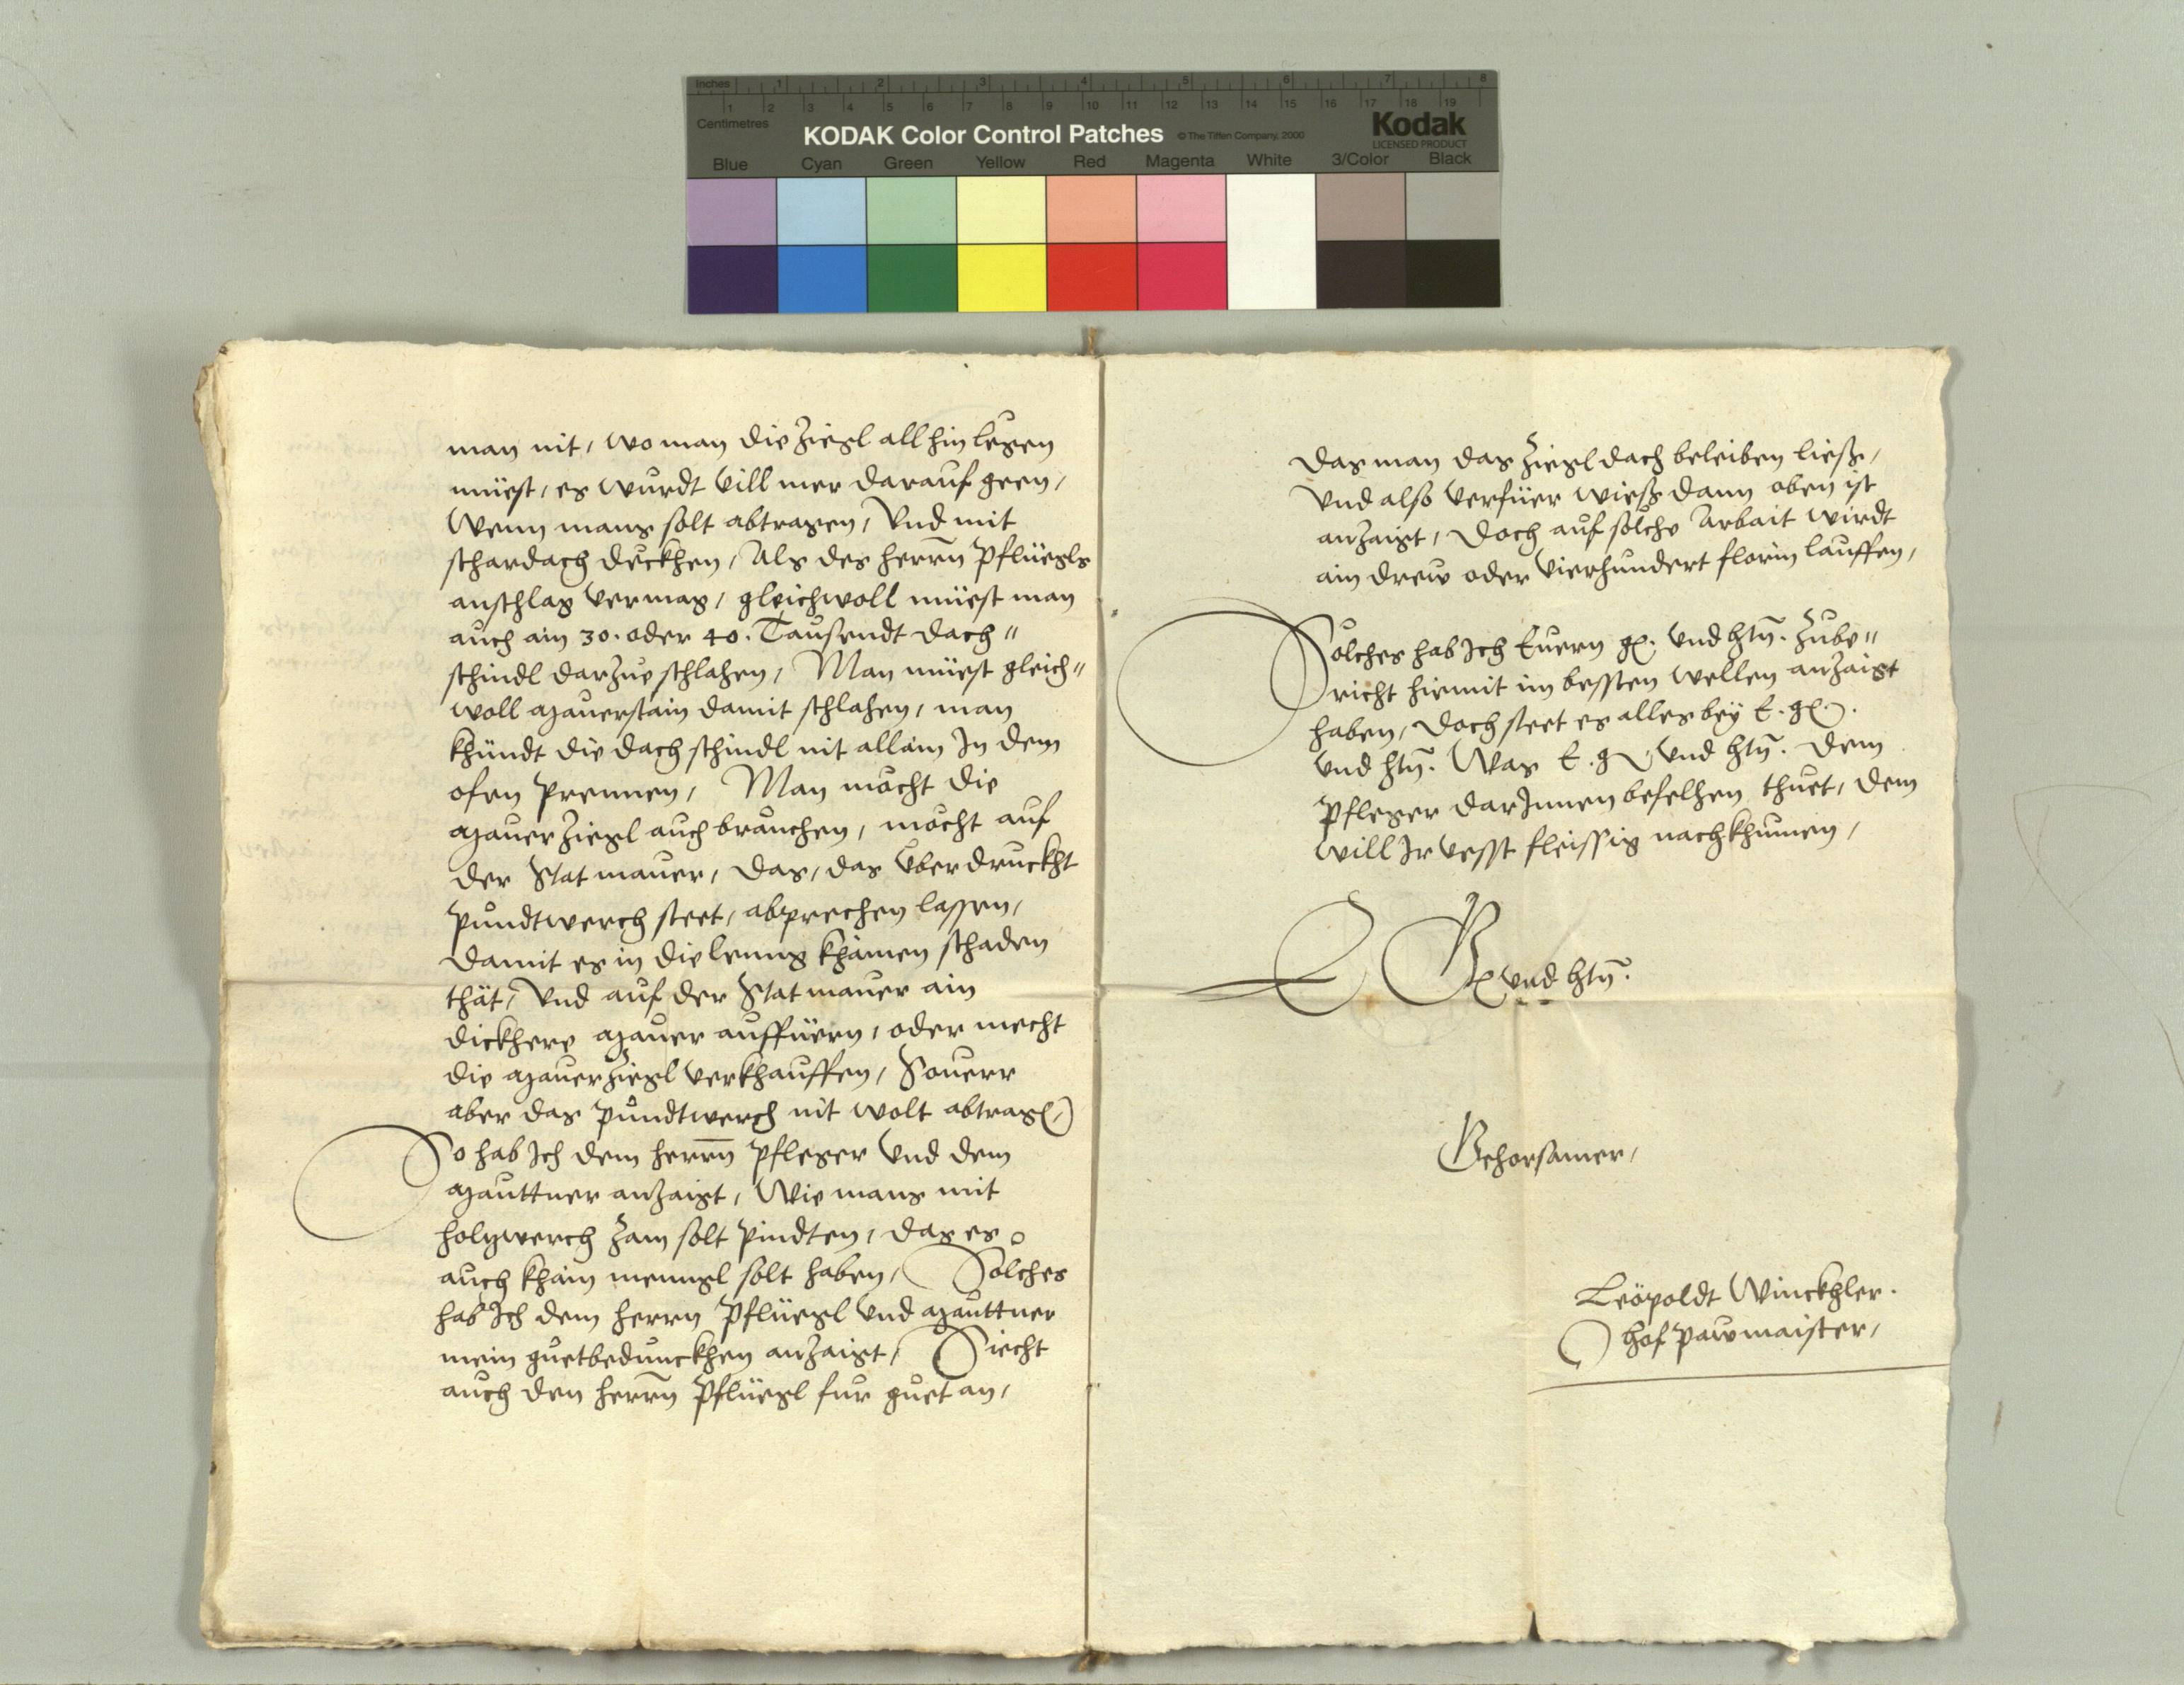 Inches 1 2 3 4 5 6 7 8
1 2 3 4 5 6 7 8 9 10 11 12 13 14 15 16 17 18 19
Centimetres
KODAK Color Control Patches © The Tiffen Company, 2000 Kodak
LICENSED PRODUCT
Blue Cyan Green Yellow Red Magenta White 3/Color Black
man nit, wo man die Ziegl all hin legen
müest, es wurdt vill mer darauf geen,
Wenn mans solt abtragen, Vnd mit
schardach deckhen, Als des herrn̄ Pflüegls
anschlag vermag, gleichwoll müest man
auch ain 30. oder 40. Tausendt dach"
schindl darzue schlahen, Man müest gleich"
woll Mauerstain damit schlahen, man
khündt die dach schindl nit allain In dem
ofen Prennen, Man möcht die
Mauer Ziegl auch brauchen, möcht auf
der Stat mauer, das, das vberdruckht
Pundtwerch steet, abprechen lassen,
damit es in die leng khainen schaden
thät, Vnd auf der Stat mauer ain
dickhere Mauer auffüern, oder mecht
die Mauerziegl verkhauffen, Souerr
aber das Pundtwerch nit wolt abtrag
So hab Ich dem herrn̄ Pfleger Vnd dem
Mauttner anzaigt, Wie mans mit
holtzwerch zam solt Pindten, das es
auch khain menngl solt haben, Solches
hab Ich dem herrn Pflüegl Vnd Mauttner
mein guetbedunckhen anzaigt, Siecht
auch den herrn̄ Pflüegl fur guet an,
das man das Ziegl dach beleiben ließ,
Vnd also verfüer wieß dann oben ist
anzaigt, doch auf solche Arbait wirdt
ain drew oder Vierhundert florin lauffen,
Solches hab Ich Euern g. Vnd htn̄. Zube"
richt hiemit im bessten wellen anzaigt
haben, doch steet es alles bey E. g.
Vnd htn̄. Was E. g Vnd htn̄. dem
Pfleger darInnen befelhen thuet, dem
will Ir Vesst fleissig nachkhumen,
E G Vnd htn̄.
Gehorsamer,
Leopoldt Winckhler.
hof Pawmaister,